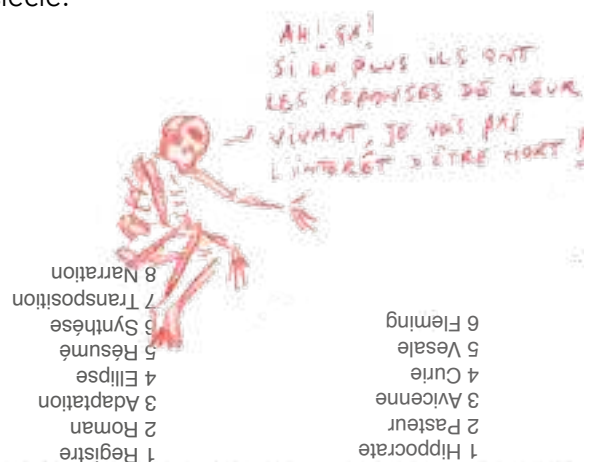 siècle.
AH! ÇA!
SI EN PLUS ILS ONT
LES RÉPONSES DE LEUR
VIVANT, JE VOIS PAS
L'INTÉRÊT D'ÊTRE MORT !
1 Registre
2 Roman
3 Adaptation
4 Ellipse
5 Résumé
6 Synthése
7 Transposition
8 Narration
1 Hippocrate
2 Pasteur
3 Avicenne
4 Curie
5 Vesale
6 Fleming